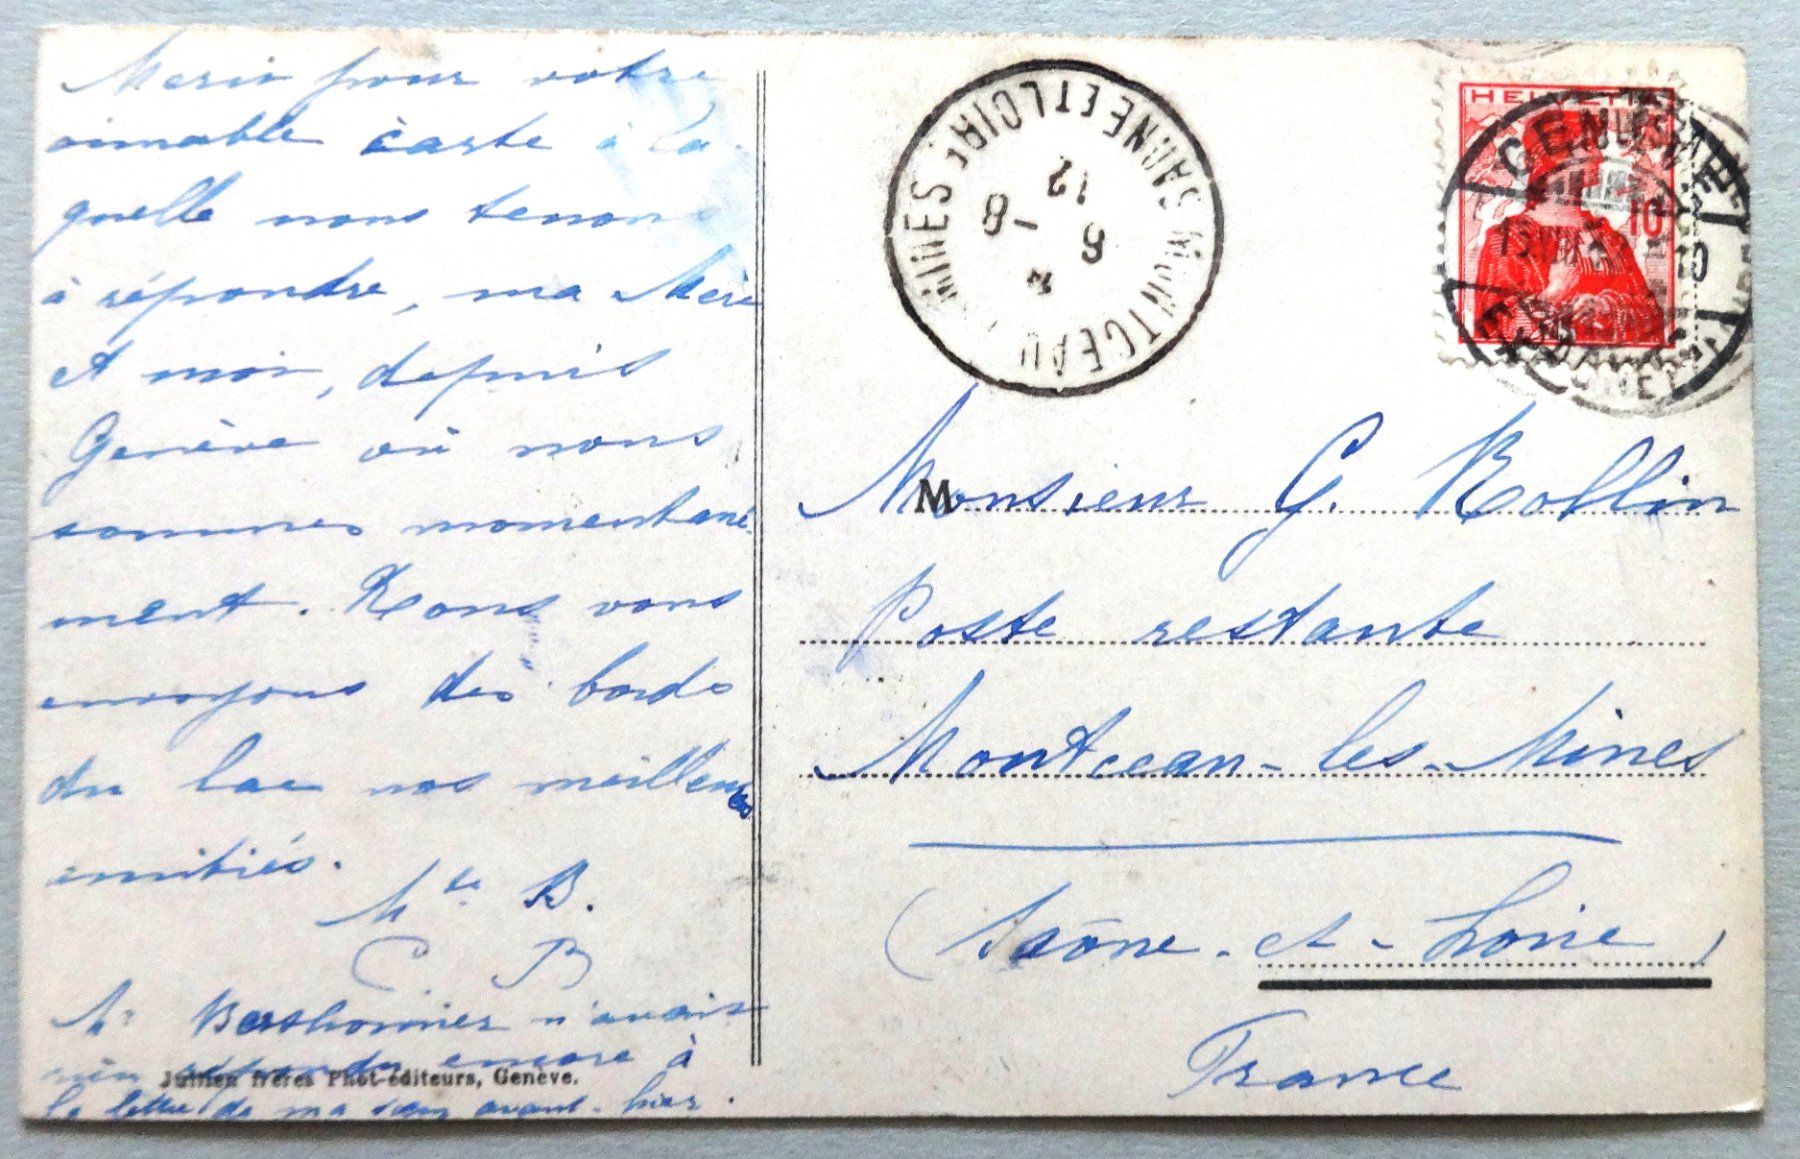 Merci pour votre
aimable carte à la
quelle nous tenons
à répondre, ma Mère
et moi, depuis
Genève où nous
sommes momentané
ment. Nous vous
envoyons des bords
du lac nos meilleures
amitiés.
Mte B.
C B
Mr Berthonnier n'avait
rien répondu encore à
la lettre de ma sœur avant-hier.
Jullien frères Phot-éditeurs, Genève.
MONTCEAU MINES (SAONE ET LOIRE)
12
8 -8
HELVETIA
10
GENÈVE
Monsieur G. Rollin
Poste restante
Montceau-les-Mines
(Saône-et-Loire)
France